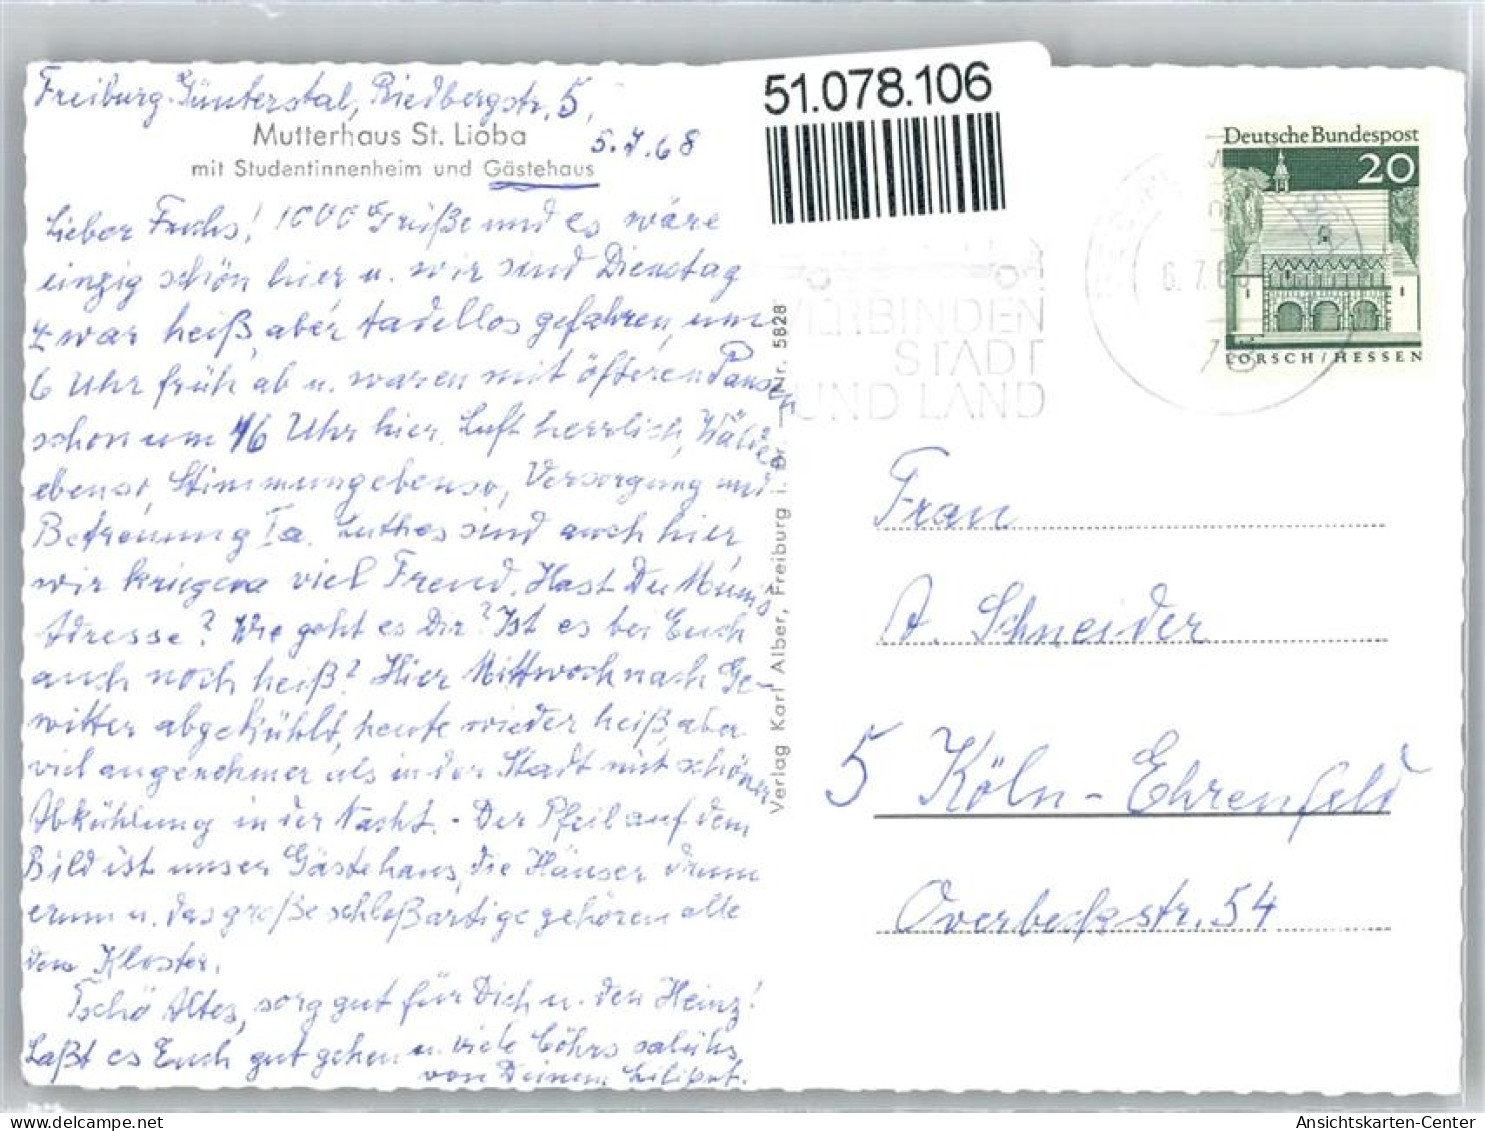 Freiburg-Günterstal, Riedbergstr. 5,
Mutterhaus St. Lioba
5.7.68
mit Studentinnenheim und Gästehaus
Lieber Fuchs! 1000 Grüße und es wäre
einzig schön hier u. wir sind Dienstag
zwar heiß, aber tadellos gefahren, um
6 Uhr früh ab u. waren mit öfteren Pausen
schon um 16 Uhr hier. Luft herrlich, Wälder
ebenso, Stimmung ebenso, Versorgung und
Betreuung Ia. Luthes sind auch hier,
wir kriegen viel Freud. Hast Du
Adresse? Wie geht es Dir? Ist es bei Euch
auch noch heiß? Hier Mittwoch nach Ge-
witter abgekühlt, heute wieder heiß, aber
viel angenehmer als in der Stadt mit schöner
Abkühlung in der Nacht. - Der Pfeil auf dem
Bild ist unser Gästehaus, die Häuser drum
erum u. das große schloßartige gehören alle
dem Kloster.
Tschö Altes, sorg gut für Dich u. den Heinz!
Laßt es Euch gut gehen u. viele
von Deinem Liliput.
Verlag Karl Alber, Freiburg i. Br. — Nr. 5828
51.078.106
VERBINDEN
STADT
UND LAND
6.7.68
Deutsche Bundespost
20
LORSCH/HESSEN
Frau
A. Schneider
5 Köln-Ehrenfeld
Overbeckstr. 54
Ansichtskarten-Center